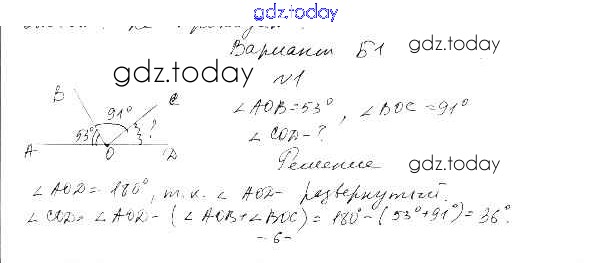 gdz.today
Вариант Б1 gdz.today
gdz.today №1
B 91° C
∠AOB=53°, ∠BOC=91°
53° ?
∠COD-?
A O D
Решение gdz.today
∠AOD=180°, т.к. ∠AOD- развернутый.
∠COD=∠AOD-(∠AOB+∠BOC)=180°-(53°+91°)=36°.
-6-